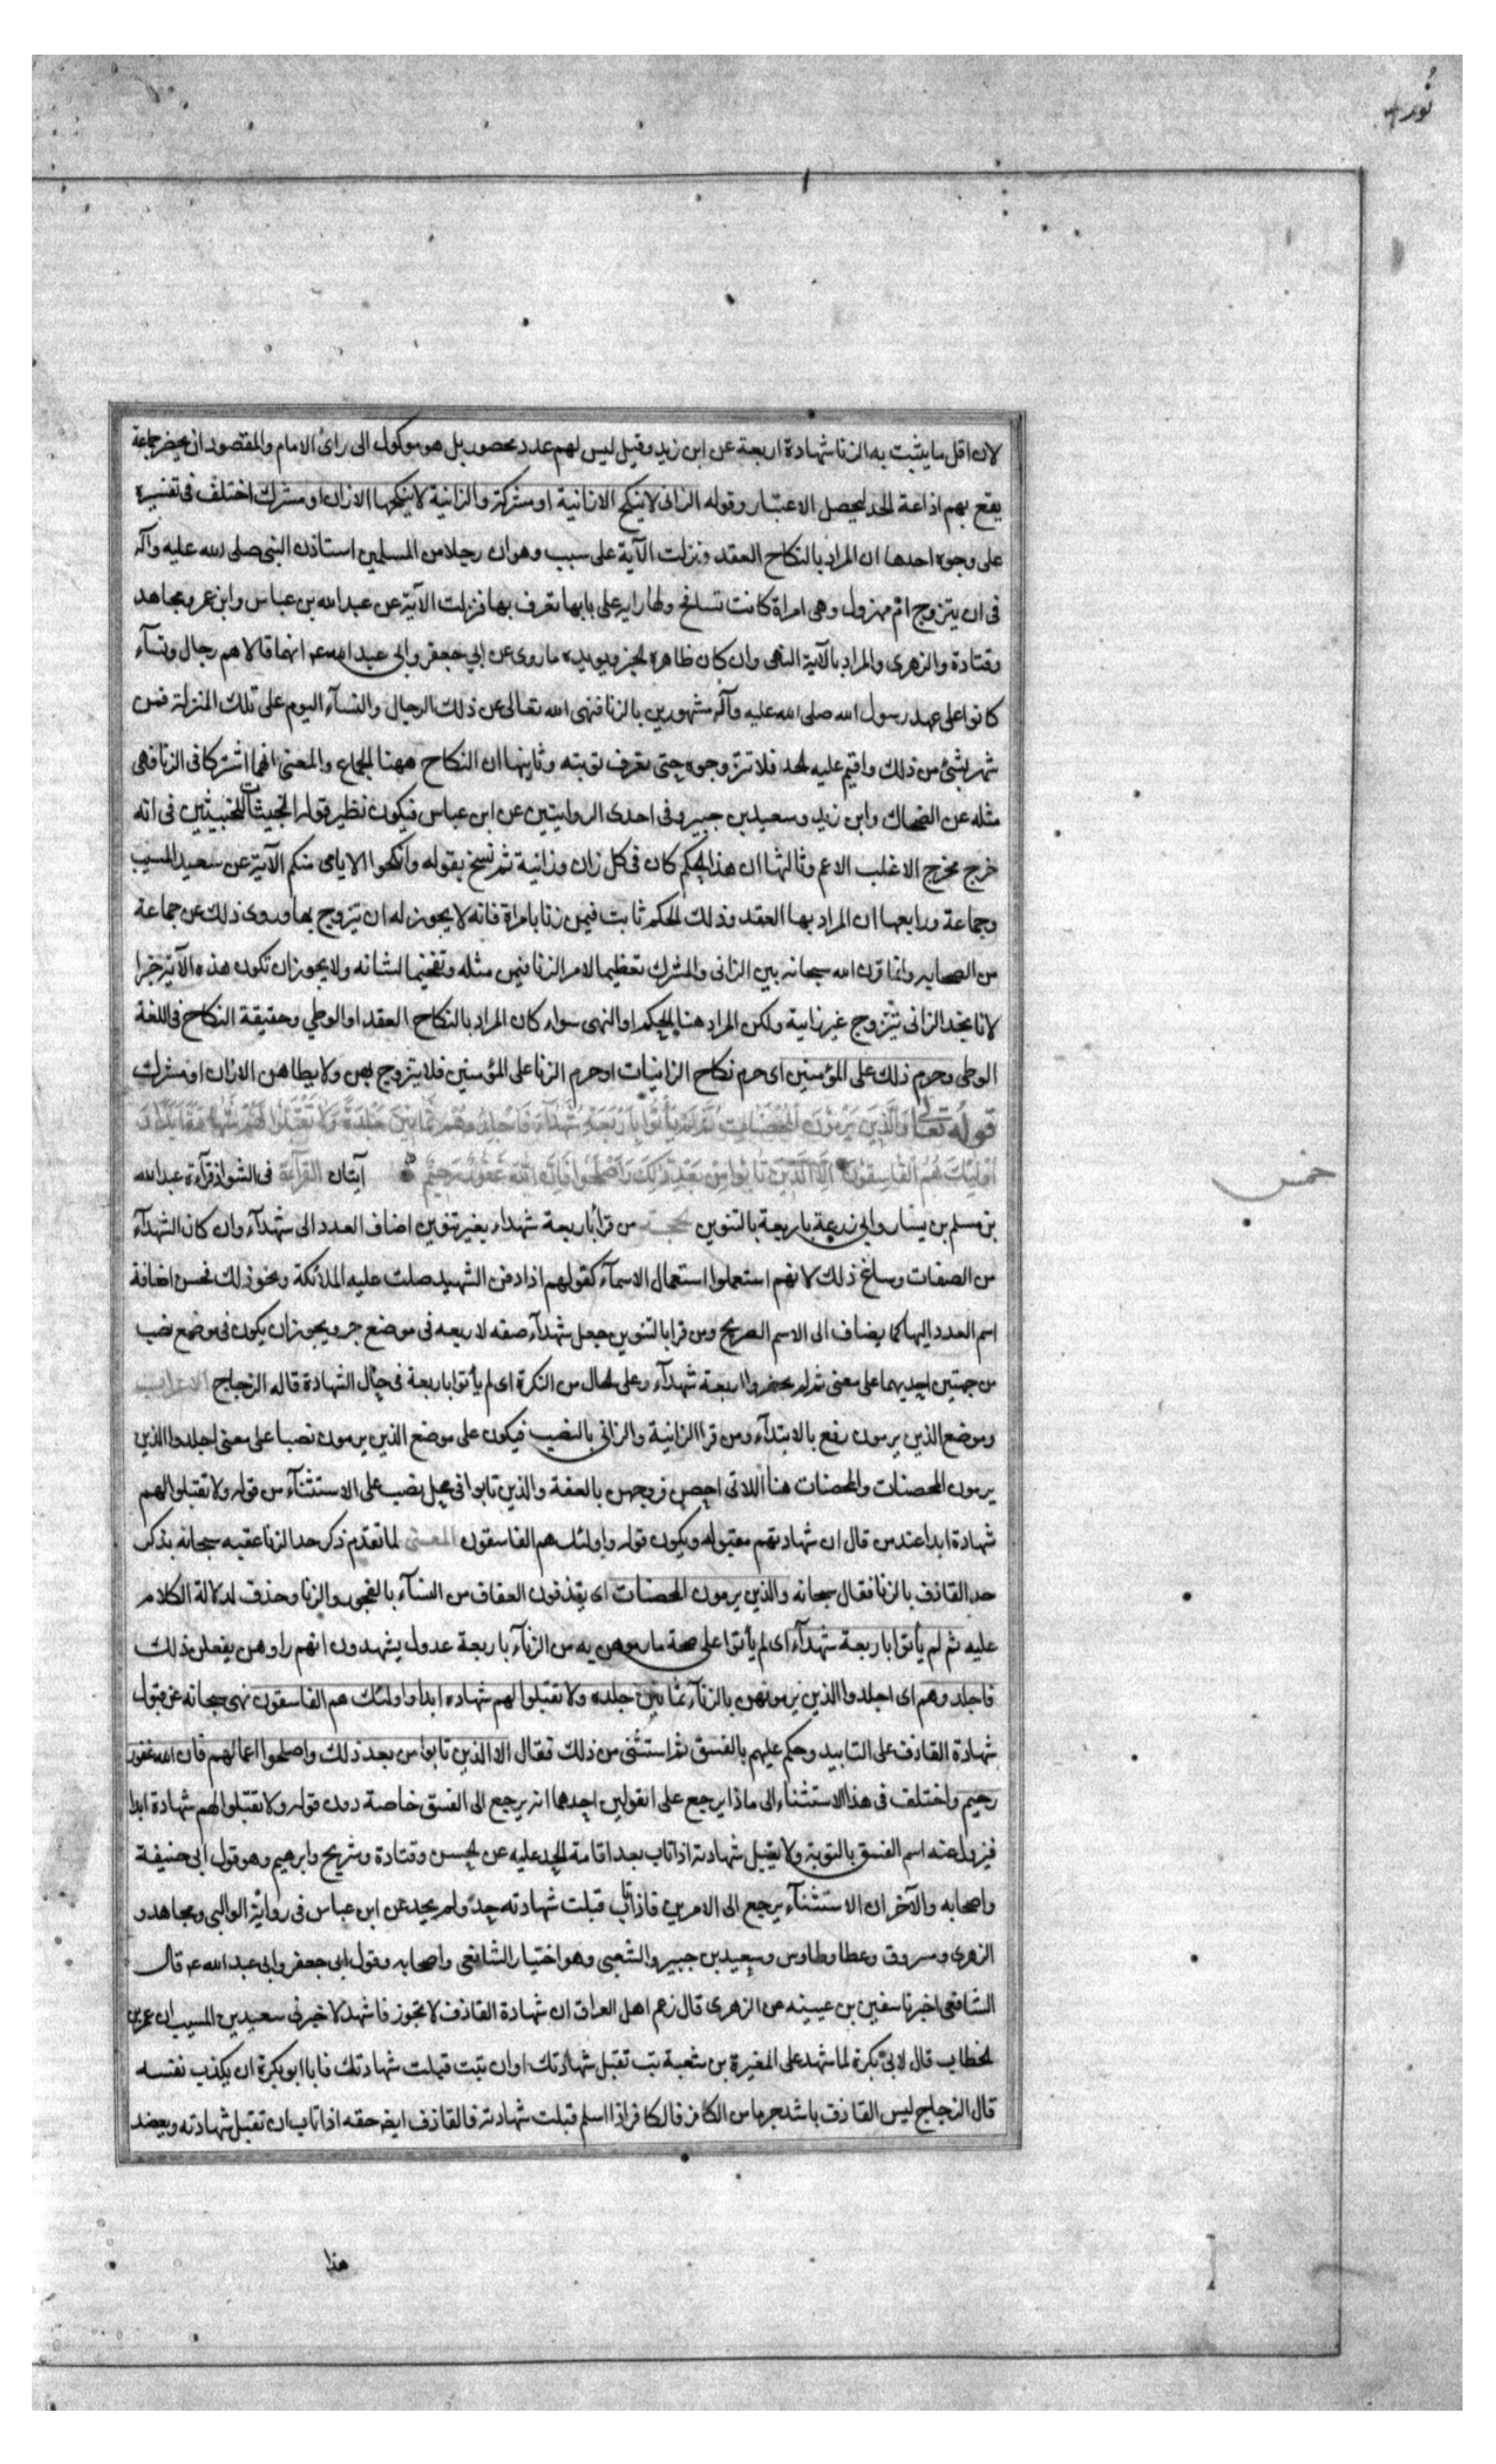 نور
لان اقل ما يثبت به الزنا شهادة اربعة عن ابن زيد وقيل ليس لهم عدد محصور بل هو موكول الى رائ الامام والمقصود ان يحضر جماعة
يقع بهم اذاعة الحد ليحصل الاعتبار وقوله الزانى لا ينكح الا زانية او مشركة والزانية لا ينكحها الا زان او مشرك اختلف فى تفسيره
على وجوه احدها ان المراد بالنكاح العقد ونزلت الآية على سبب وهو ان رجلا من المسلمين استاذن النبى صلى الله عليه وآله
فى ان يتزوج ام مهزول وهى امراة كانت تسافح ولها راية على بابها تعرف بها فنزلت الآية عن عبد الله بن عباس وابن عمر ومجاهد
وقتادة والزهرى والمراد بالآية النهى وان كان ظاهره الخبر ويؤيده ما روى عن ابي جعفر وابى عبد الله ع انهما قالا هم رجال ونسآء
كانوا على عهد رسول الله صلى الله عليه وآله مشهورين بالزنا فنهى الله تعالى عن ذلك الرجال والنسآء اليوم على تلك المنزلة فمن
شهر بشئ من ذلك واقيم عليه الحد فلا تزوجوه حتى تعرف توبته وثانيها ان النكاح ههنا الجماع والمعنى انهما اشتركا فى الزنا فهى
مثله عن الضحاك وابن زيد وسعيد بن جبير وفى احدى الروايتين عن ابن عباس فيكون نظير قوله الخبيثات للخبيثين فى انه
خرج مخرج الاغلب الاعم وثالثها ان هذا الحكم كان فى كل زان وزانية ثم نسخ بقوله وانكحوا الايامى منكم الآية عن سعيد المسيب
وجماعة ورابعها ان المراد بها العقد وذلك الحكم ثابت فيمن زنا بامراة فانه لا يجوز له ان يتزوج بها وروى ذلك عن جماعة
من الصحابه وانما قرن الله سبحانه بين الزانى والمشرك تعظيما لامر الزنا فيمن مثله وتفخيما لشانه ولا يجوز ان تكون هذه الآية خبرا
لانا نجد الزانى يتزوج غير زانية ولكن المراد هنا الحكم او النهى سواء كان المراد بالنكاح العقد او الوطي وحقيقة النكاح فى اللغة
الوطى وحرم ذلك على المؤمنين اى حرم نكاح الزانيات او حرم الزنا على المؤمنين فلا يتزوج بهن ولا يطاهن الا زان او مشرك
قوله تعالى وَالَّذِينَ يَرْمُونَ الْمُحْصَنَاتِ ثُمَّ لَمْ يَأْتُوا بِأَرْبَعَةِ شُهَدَآءَ فَاجْلِدُوهُمْ ثَمَانِينَ جَلْدَةً وَلَا تَقْبَلُوا لَهُمْ شَهَادَةً أَبَدًا وَ
أُولَئِكَ هُمُ الْفَاسِقُونَ إِلَّا الَّذِينَ تَابُوا مِنْ بَعْدِ ذَلِكَ وَأَصْلَحُوا فَإِنَّ اللَّهَ غَفُورٌ رَحِيمٌ آيتان القراءة فى الشواذ قرآءة عبد الله
خمس
بن مسلم بن يسار وابى زرعة باربعة بالتنوين الحجة من قرأ باربعة شهداء بغير تنوين اضاف العدد الى شهدآء وان كان الشهدآء
من الصفات وساغ ذلك لانهم استعملوا استعمال الاسمآء كقولهم اذا دفن الشهيد صلت عليه الملائكة ونحو ذلك فحسن اضافة
اسم العدد اليها كما يضاف الى الاسم الصريح ومن قرا بالتنوين جعل شهدآء صفه لاربعه فى موضع جر ويجوز ان يكون فى موضع نصب
من جهتين احديهما على معنى ثم لم يحضروا اربعة شهدآء وعلى الحال من النكرة اى لم يأتوا باربعة فى حال الشهادة قاله الزجاج الاعراب
وموضع الذين يرمون رفع بالابتدآء ومن قرا الزانية والزانى بالنصب فيكون على موضع الذين يرمون نصبا على معنى اجلدوا الذين
يرمون المحصنات والمحصنات هنا اللاتى احصن فروجهن بالعفة والذين تابوا فى محل نصب على الاستثنآء من قوله ولا تقبلوا لهم
شهادة ابدا عند من قال ان شهادتهم مقبوله ويكون قوله واولئك هم الفاسقون المعنى لما تقدم ذكر حد الزنا عقبه سبحانه بذكر
حد القاذف بالزنا فقال سبحانه والذين يرمون المحصنات اى يقذفون العفاف من النسآء بالفجور والزنا وحذف لدلالة الكلام
عليه ثم لم يأتوا باربعة شهدآء اى لم يأتوا على صحة ما رموهن به من الزنآء باربعة عدول يشهدون انهم راوهن يفعلن ذلك
فاجلدوهم اى اجلدوا الذين يرمونهن بالزنآء ثمانين جلده ولا تقبلوا لهم شهاده ابدا واولئك هم الفاسقون نهى سبحانه عن قبول
شهادة القاذف على التابيد وحكم عليهم بالفسق ثم استثنى من ذلك فقال الا الذين تابوا من بعد ذلك واصلحوا اعمالهم فان الله غفور
رحيم واختلف فى هذا الاستثناء الى ماذا يرجع على قولين احدهما انه يرجع الى الفسق خاصة دون قوله ولا تقبلوا لهم شهادة ابدا
فيزول عنه اسم الفسق بالتوبة ولا يقبل شهادته اذا تاب بعد اقامة الحد عليه عن الحسن وقتادة وشريح وابرهيم وهو قول ابى حنيفة
واصحابه والآخر ان الاستثنآء يرجع الى الامرين فاذا تاب قبلت شهادته حد ولم يحد عن ابن عباس فى رواية الوالبى ومجاهد و
الزهرى ومسروق وعطا وطاوس وسعيد بن جبير والشعبى وهو اختيار الشافعى واصحابه وقول ابى جعفر وابى عبد الله ع قال
الشافعى اخبرنا سفين بن عيينه عن الزهرى قال زعم اهل العراق ان شهادة القاذف لا تجوز فاشهد لاخبرنى سعيد بن المسيب ان عمر بن
الخطاب قال لابى بكرة لما شهد على المغيرة بن شعبة تب تقبل شهادتك او ان تبت قبلت شهادتك فابا ابو بكرة ان يكذب نفسه
قال الزجاج ليس القاذف باشد جرما من الكافر فالكافر اذا اسلم قبلت شهادته فالقاذف ايض حقه اذا تاب ان تقبل شهادته ويعضد
هذا